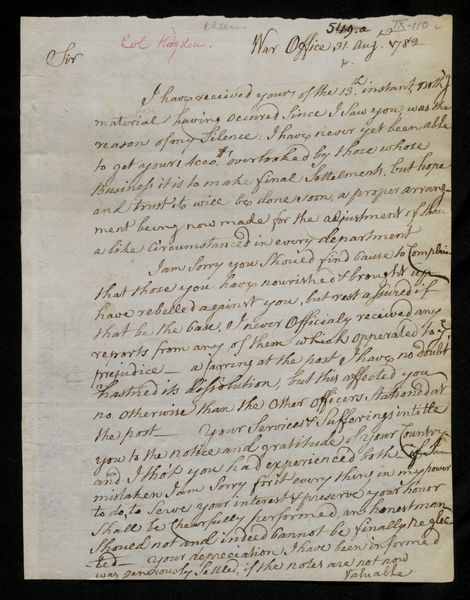 549.a
IX-110
Col Hogden
War Office, 31. Aug.t 1782
Sir
I have received yours of the 13.th instant nothg
material having occured Since I Saw you, was the
reason of my Silence: I have never yet been able
to get yours Acco.ts overlooked by those whose
Business it is to make final Settlement, but hope
and trust it will be done soon, a proper arrange-
ment being now made for the adjustment of those
a like Circumstanced in every department
I am Sorry you Should find cause to Complain
that those you have nourished & brought up
have rebelled against you, but rest assured if
that be the base, I never Officially received any
reports from any of them which opperated to y.r
prejudice — a jarring at the post I have no doubt
hastned its dissolution, but this affected you
no otherwise than the other Officers Stationed at
the post — Your Services & Sufferings intitle
you to the notice and gratitude of your Country
and I tho't you had experienced both if I am
mistaken I am Sorry for it every thing in my power
to do, to Serve your interest & preserve your honor
Shall be Chearfully performed an honest man
Should not and indeed cannot be finally neglec
ted — Your depreciation I have been informed
was generously Settled, if the notes are not now
Valuable